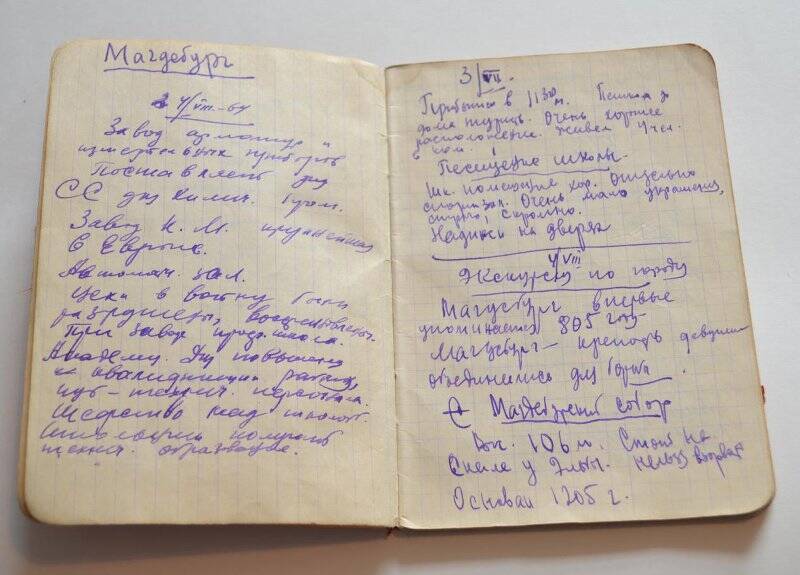 Магдебург
4/VIII-64
Завод арматур и
измерительных приборов
Поставляет для
СС для химич. пром.
Завод К. М. крупнейший
в Европе.
Автоматич. зал.
Цеха в войну были
разрушены, восстановлены.
При заводе проф. школа.
Академ. Для повышения
квалификации рабочих,
Шефство над школой.
технич. образование.
3/VII.
Прибытие в 11 30 м.
Очень хорошее
расположение. Живем 4 чел.
в ком.
Посещение школы.
Шк. помещение хор. Отдельно
спортзал. Очень мало украшения,
строго, скромно.
Надпись на дверях
4/VIII
Экскурсия по городу
Магдебург впервые
упоминается 805 году
Магдебург - крепость девушки
объединились для борьбы
Магдебургский собор
Выс. 106 м. Стоит на
скале у Эльбы. нельзя взорвать
Основан 1205 г.